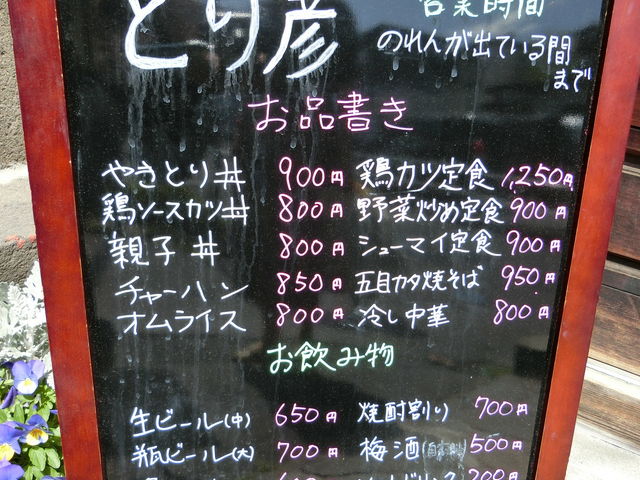 とり彦
営業時間
のれんが出ている間
まで
お品書き
やきとり丼 900円 鶏カツ定食 1,250円
鶏ソースカツ丼 800円 野菜炒め定食 900円
親子丼 800円 シューマイ定食 900円
チャーハン 850円 五目カタ焼そば 950円
オムライス 800円 冷し中華 800円
お飲み物
生ビール(中) 650円 焼酎割り 700円
瓶ビール(大) 700円 梅酒 500円